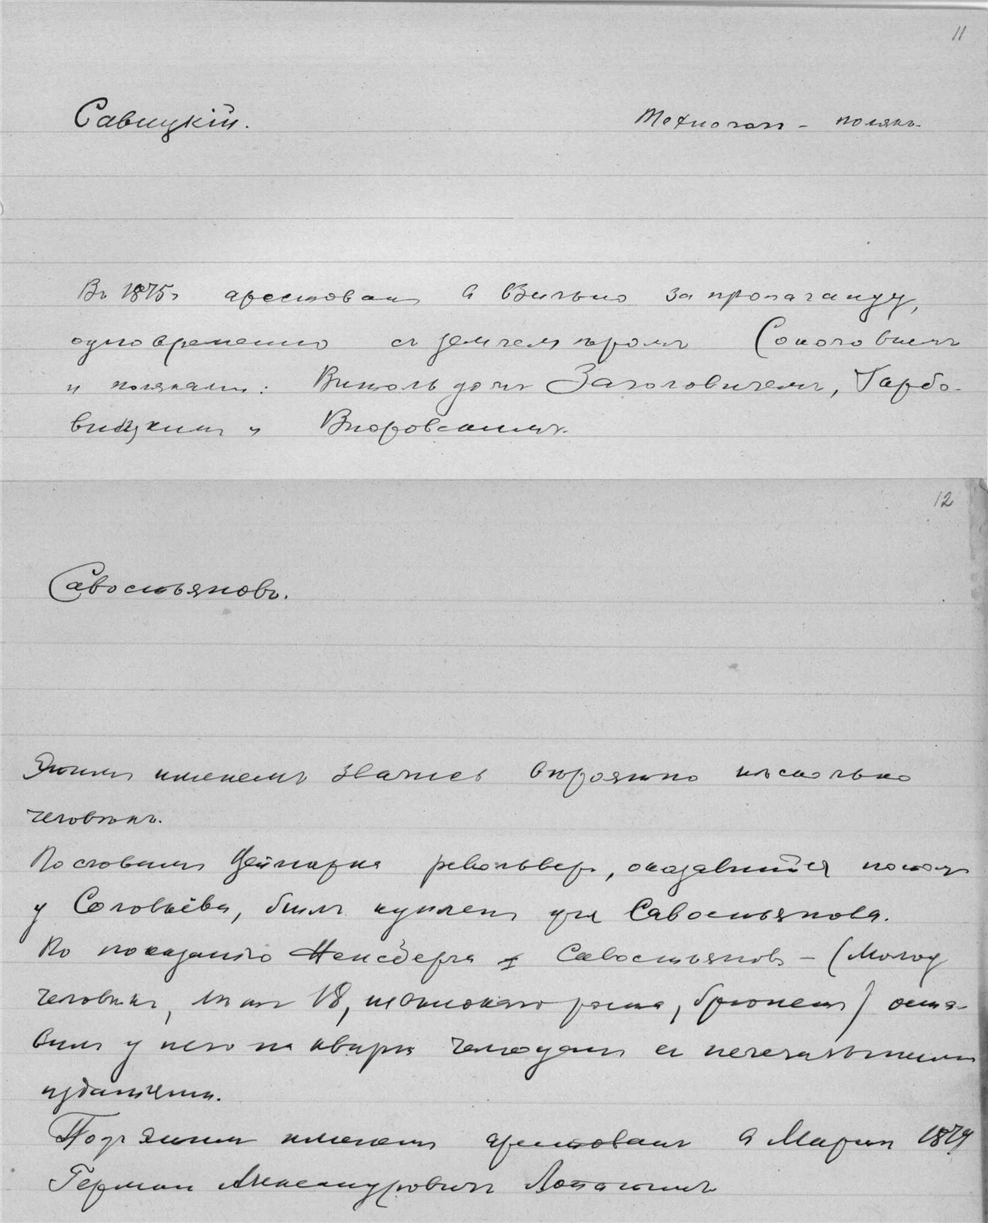 11
Савицкій.
Технолог – полякъ.
Въ 1875г арестован в Вильно за пропаганду,
одновременно съ землемѣромъ Соколовымъ
и поляками: Викольдомъ Заголовичемъ, Гарбо-
вицкимъ и Вноровскимъ.
12
Савостьяновъ.
Этимъ именемъ звались вѣроятно нѣсколько
человѣкъ.
По словамъ Веймарна револьверъ, оказавшійся потомъ
у Соловьёва, былъ купленъ для Савостьянова.
По показанію Савостьяновъ – (молод
человѣкъ, лѣтъ 18, роста, брюнетъ) оста-
вилъ у него на кварт чемоданъ съ нелегальными
изданіями.
Подъ этим именемъ арестованъ в Мартѣ 1879
Герман Александровичъ Лопатинъ